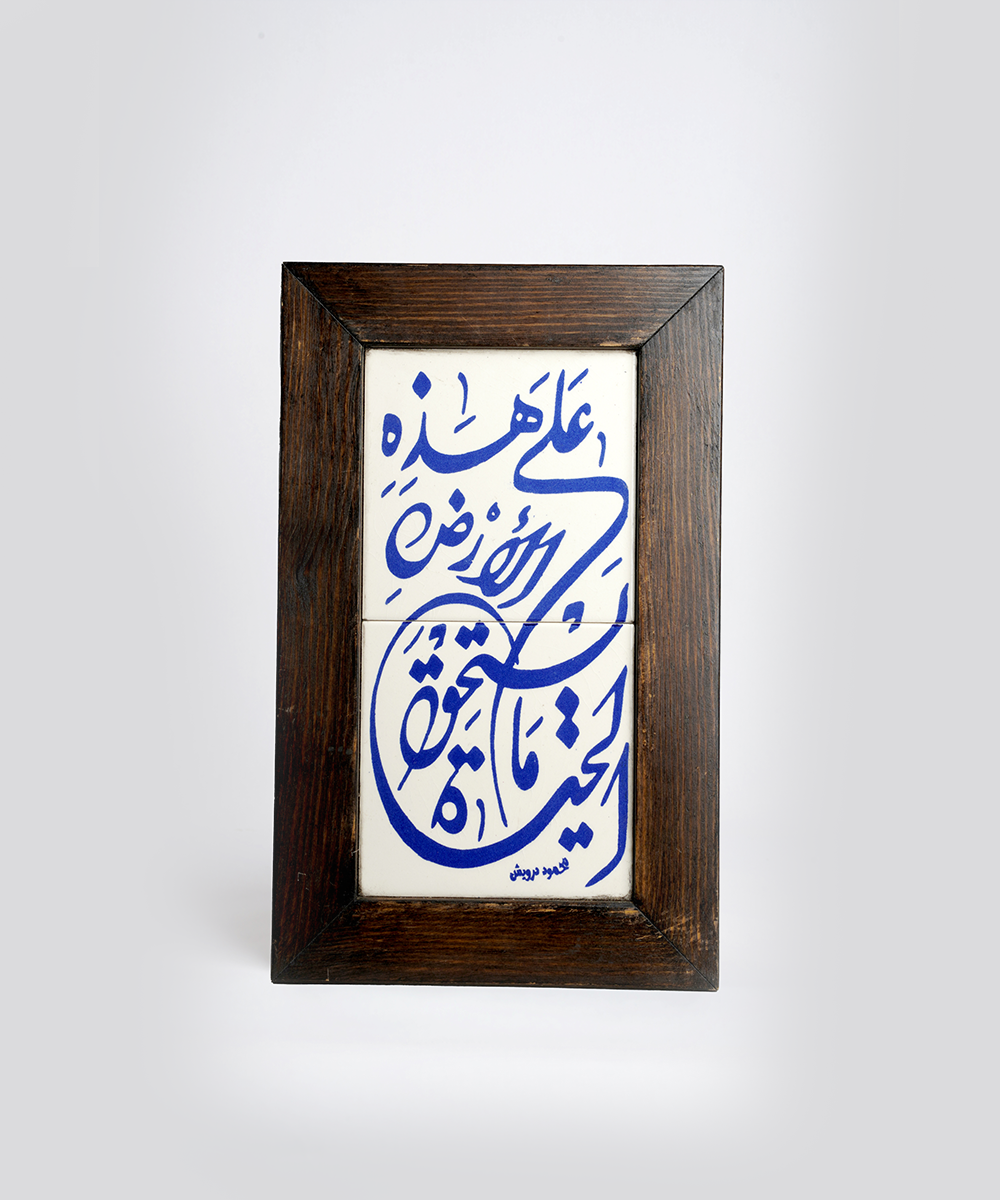 عَلَى هَذِهِ
الأَرْضِ
مَا يَسْتَحِقُّ
الحَيَاةَ
محمود درويش